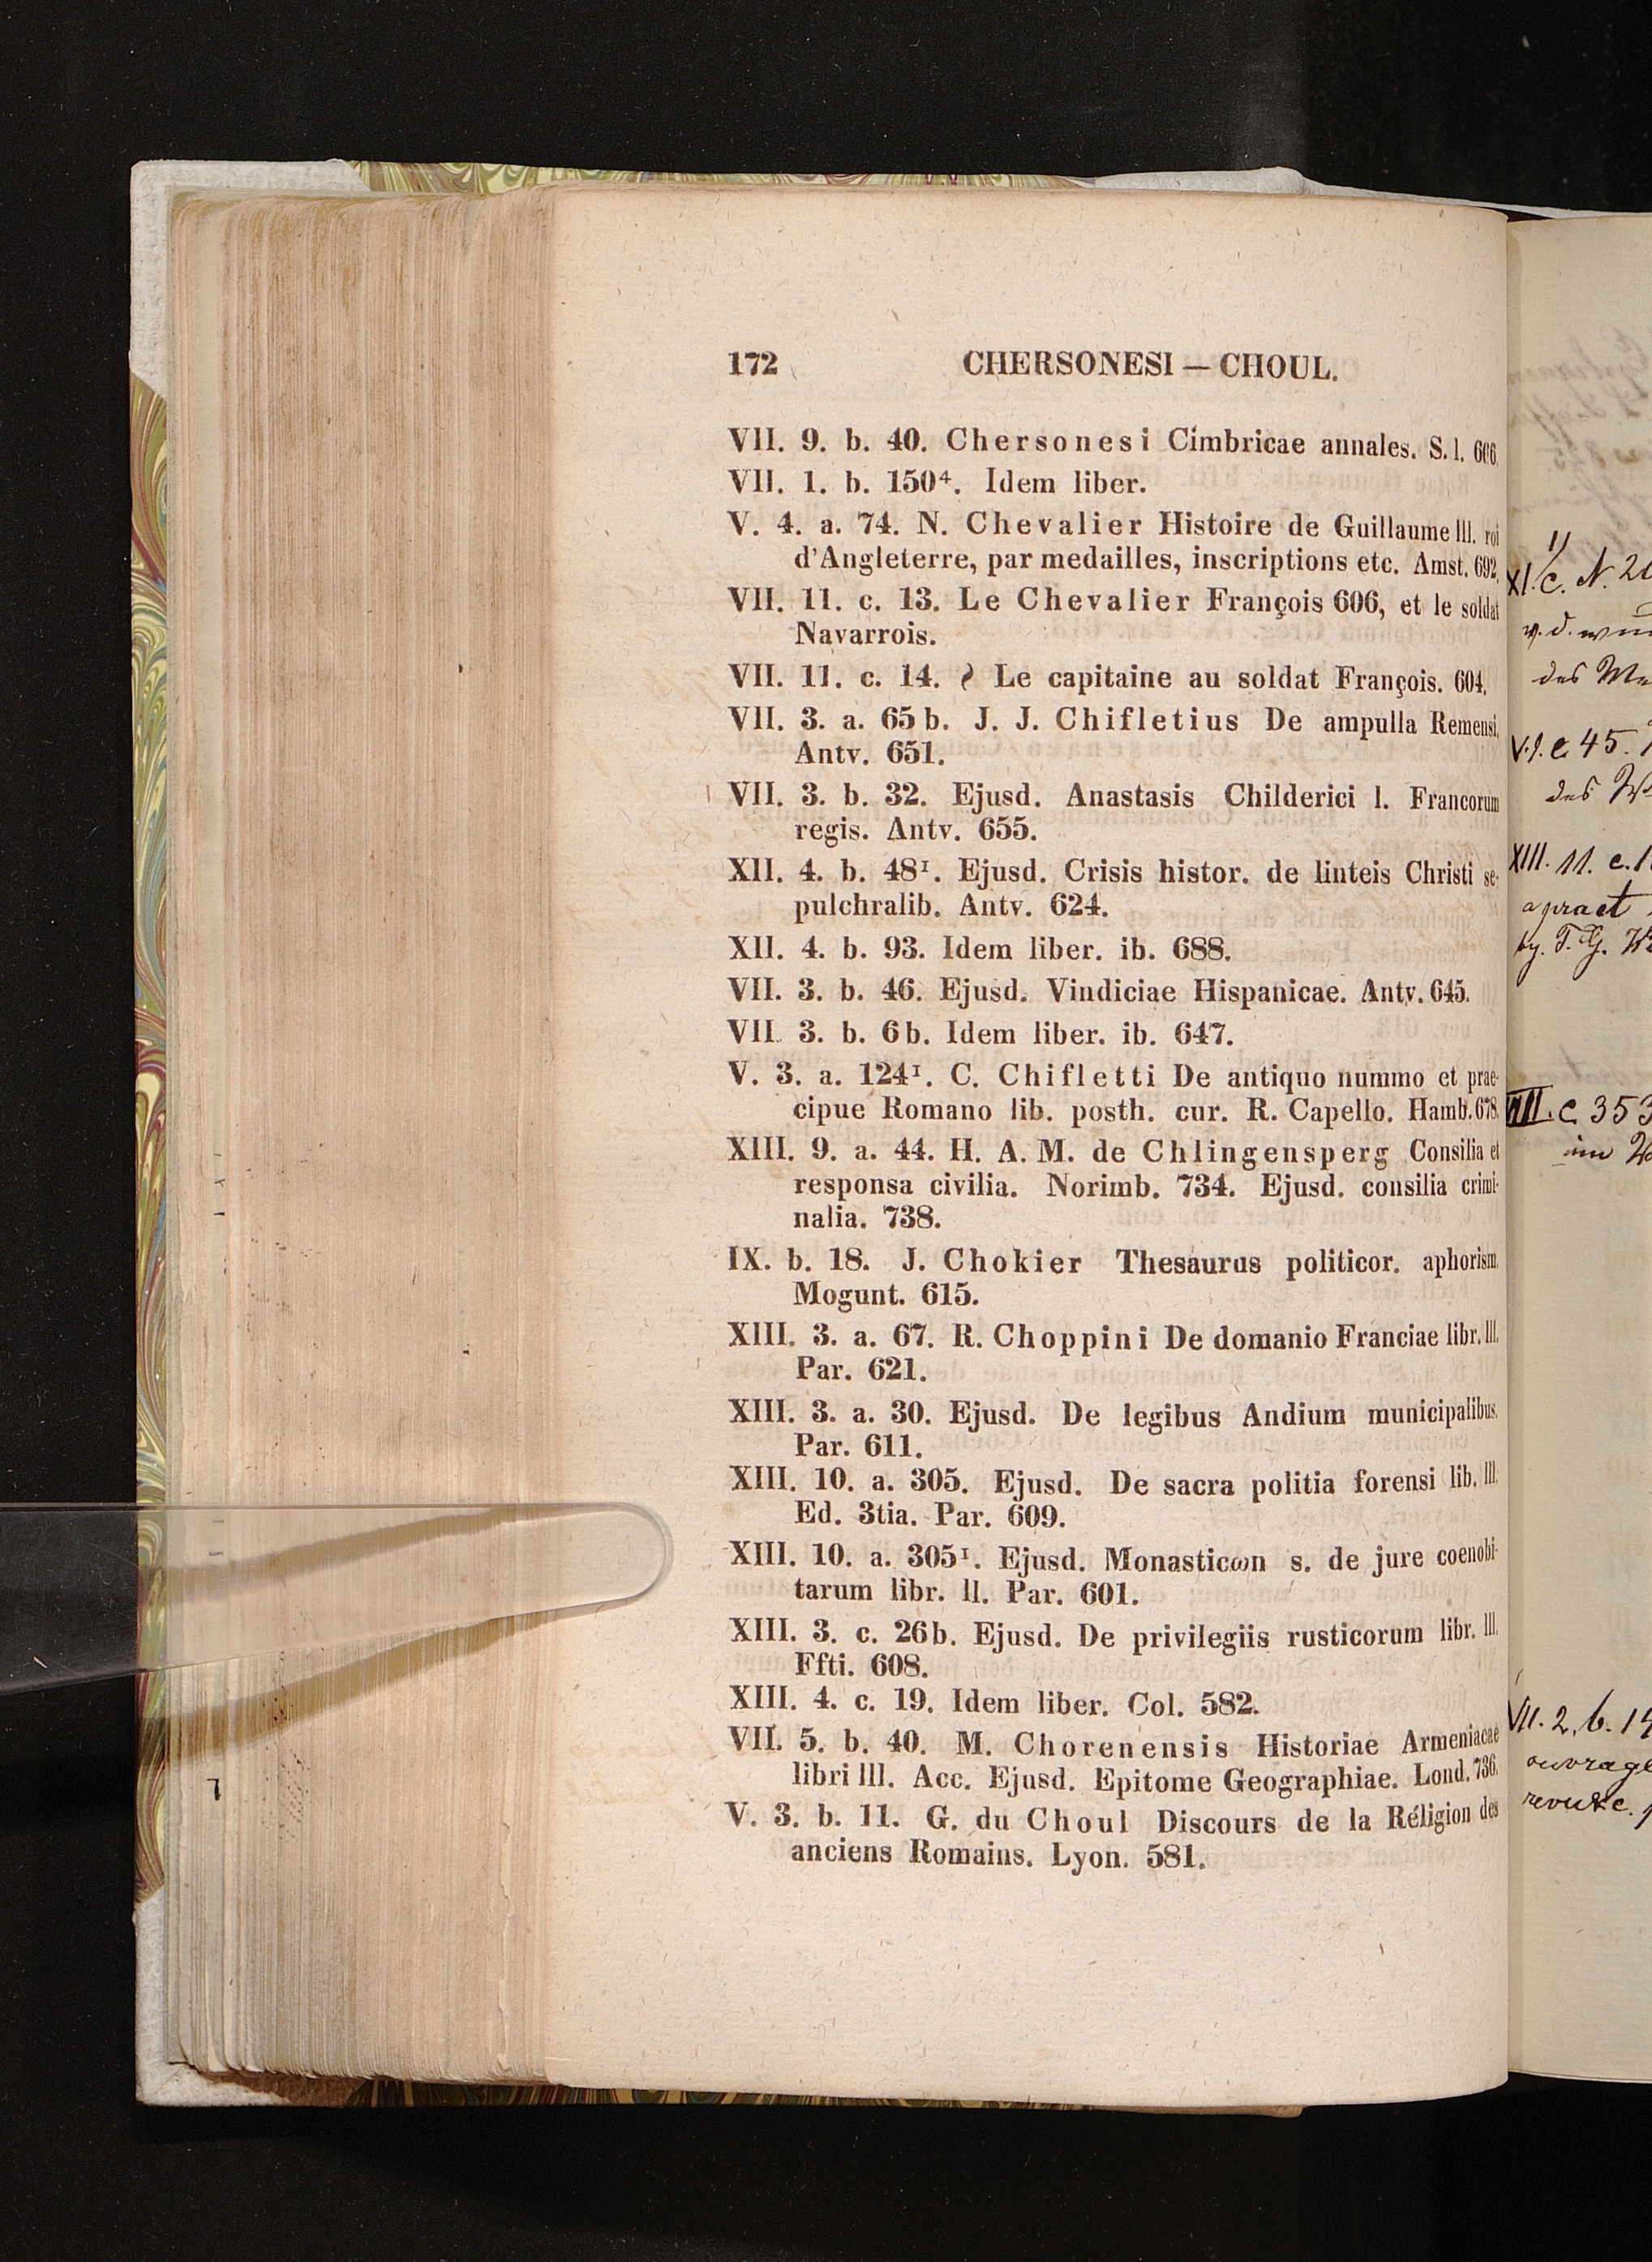 172 CHERSONESI — CHOUL.
VII. 9. b. 40. Chersonesi Cimbricae annales. S. l. 606.
VII. 1. b. 150⁴. Idem liber.
V. 4. a. 74. N. Chevalier Histoire de Guillaume III. roi
d'Angleterre, par medailles, inscriptions etc. Amst. 692.
VII. 11. c. 13. Le Chevalier François 606, et le soldat
Navarrois.
VII. 11. c. 14. Le capitaine au soldat François. 604.
VII. 3. a. 65 b. J. J. Chifletius De ampulla Remensi.
Antv. 651.
VII. 3. b. 32. Ejusd. Anastasis Childerici I. Francorum
regis. Antv. 655.
XII. 4. b. 48¹. Ejusd. Crisis histor. de linteis Christi se-
pulchralib. Antv. 624.
XII. 4. b. 93. Idem liber. ib. 688.
VII. 3. b. 46. Ejusd. Vindiciae Hispanicae. Antv. 645.
VII. 3. b. 6 b. Idem liber. ib. 647.
V. 3. a. 124¹. C. Chifletti De antiquo nummo et prae-
cipue Romano lib. posth. cur. R. Capello. Hamb. 678.
XIII. 9. a. 44. H. A. M. de Chlingensperg Consilia et
responsa civilia. Norimb. 734. Ejusd. consilia crimi-
nalia. 738.
IX. b. 18. J. Chokier Thesaurus politicor. aphorism.
Mogunt. 615.
XIII. 3. a. 67. R. Choppini De domanio Franciae libr. III.
Par. 621.
XIII. 3. a. 30. Ejusd. De legibus Andium municipalibus.
Par. 611.
XIII. 10. a. 305. Ejusd. De sacra politia forensi lib. III.
Ed. 3tia. Par. 609.
XIII. 10. a. 305¹. Ejusd. Monasticωn s. de jure coenobi-
tarum libr. II. Par. 601.
XIII. 3. c. 26 b. Ejusd. De privilegiis rusticorum libr. III.
Ffti. 608.
XIII. 4. c. 19. Idem liber. Col. 582.
VII. 5. b. 40. M. Chorenensis Historiae Armeniacae
libri III. Acc. Ejusd. Epitome Geographiae. Lond. 736.
V. 3. b. 11. G. du Choul Discours de la Réligion des
anciens Romains. Lyon. 581.
XI. c. N.
des
V. 9. e 45.
des
XIII. 11. c.
a pract
by. T. G.
VIII. c 353
im
VII. 2. b.
ouvrage